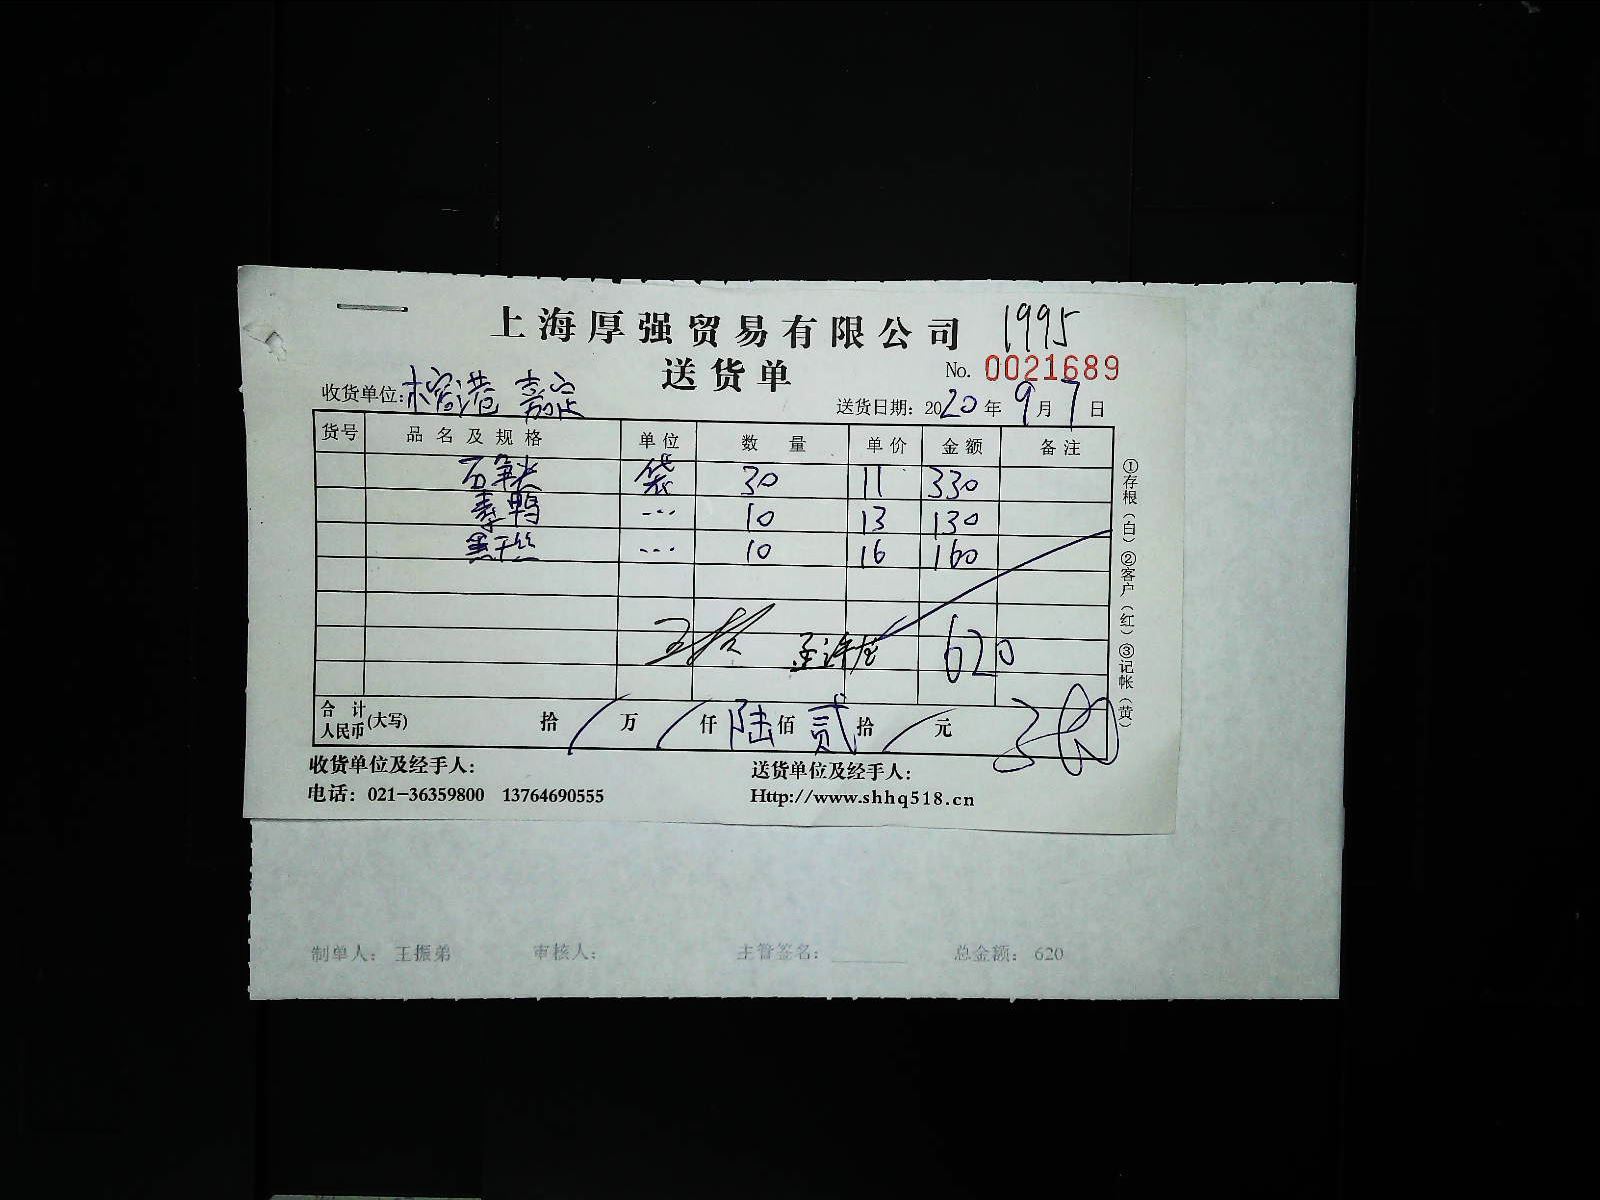 上海厚强贸易有限公司 1995
送货单 No. 0021689
收货单位: 榕港 嘉定 送货日期: 2020年9月7日
货号 品名及规格 单位 数量 单价 金额 备注
袋 30 11 330
素鸭 ... 10 13 130
黑干丝 ... 10 16 160
620
合计人民币(大写) 拾 / 万 / 仟 陆 佰 贰 拾 / 元
收货单位及经手人: 送货单位及经手人:
电话: 021-36359800 13764690555 Http://www.shhq518.cn
①存根(白)②客户(红)③记帐(黄)
制单人: 王振弟 审核人: 主管签名: 总金额: 620